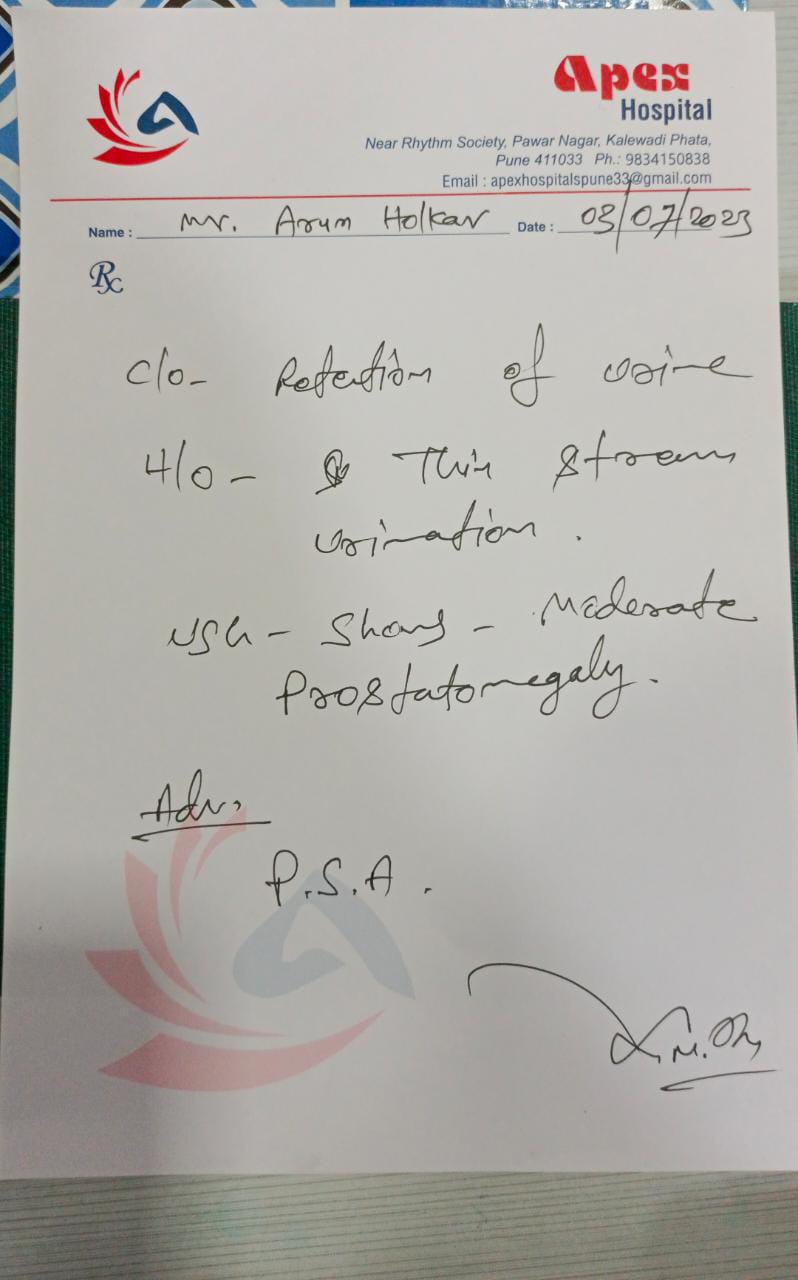 Apex
Hospital
Near Rhythm Society, Pawar Nagar, Kalewadi Phata,
Pune 411033 Ph.: 9834150838
Email : apexhospitalspune33@gmail.com
Name : Mr. Arum Holkar Date : 03/07/2023
Rx
C/o - Retention of urine
H/o - Thin stream
urination .
USG - Shows - Moderate
Prostatomegaly .
Adv.
P.S.A .